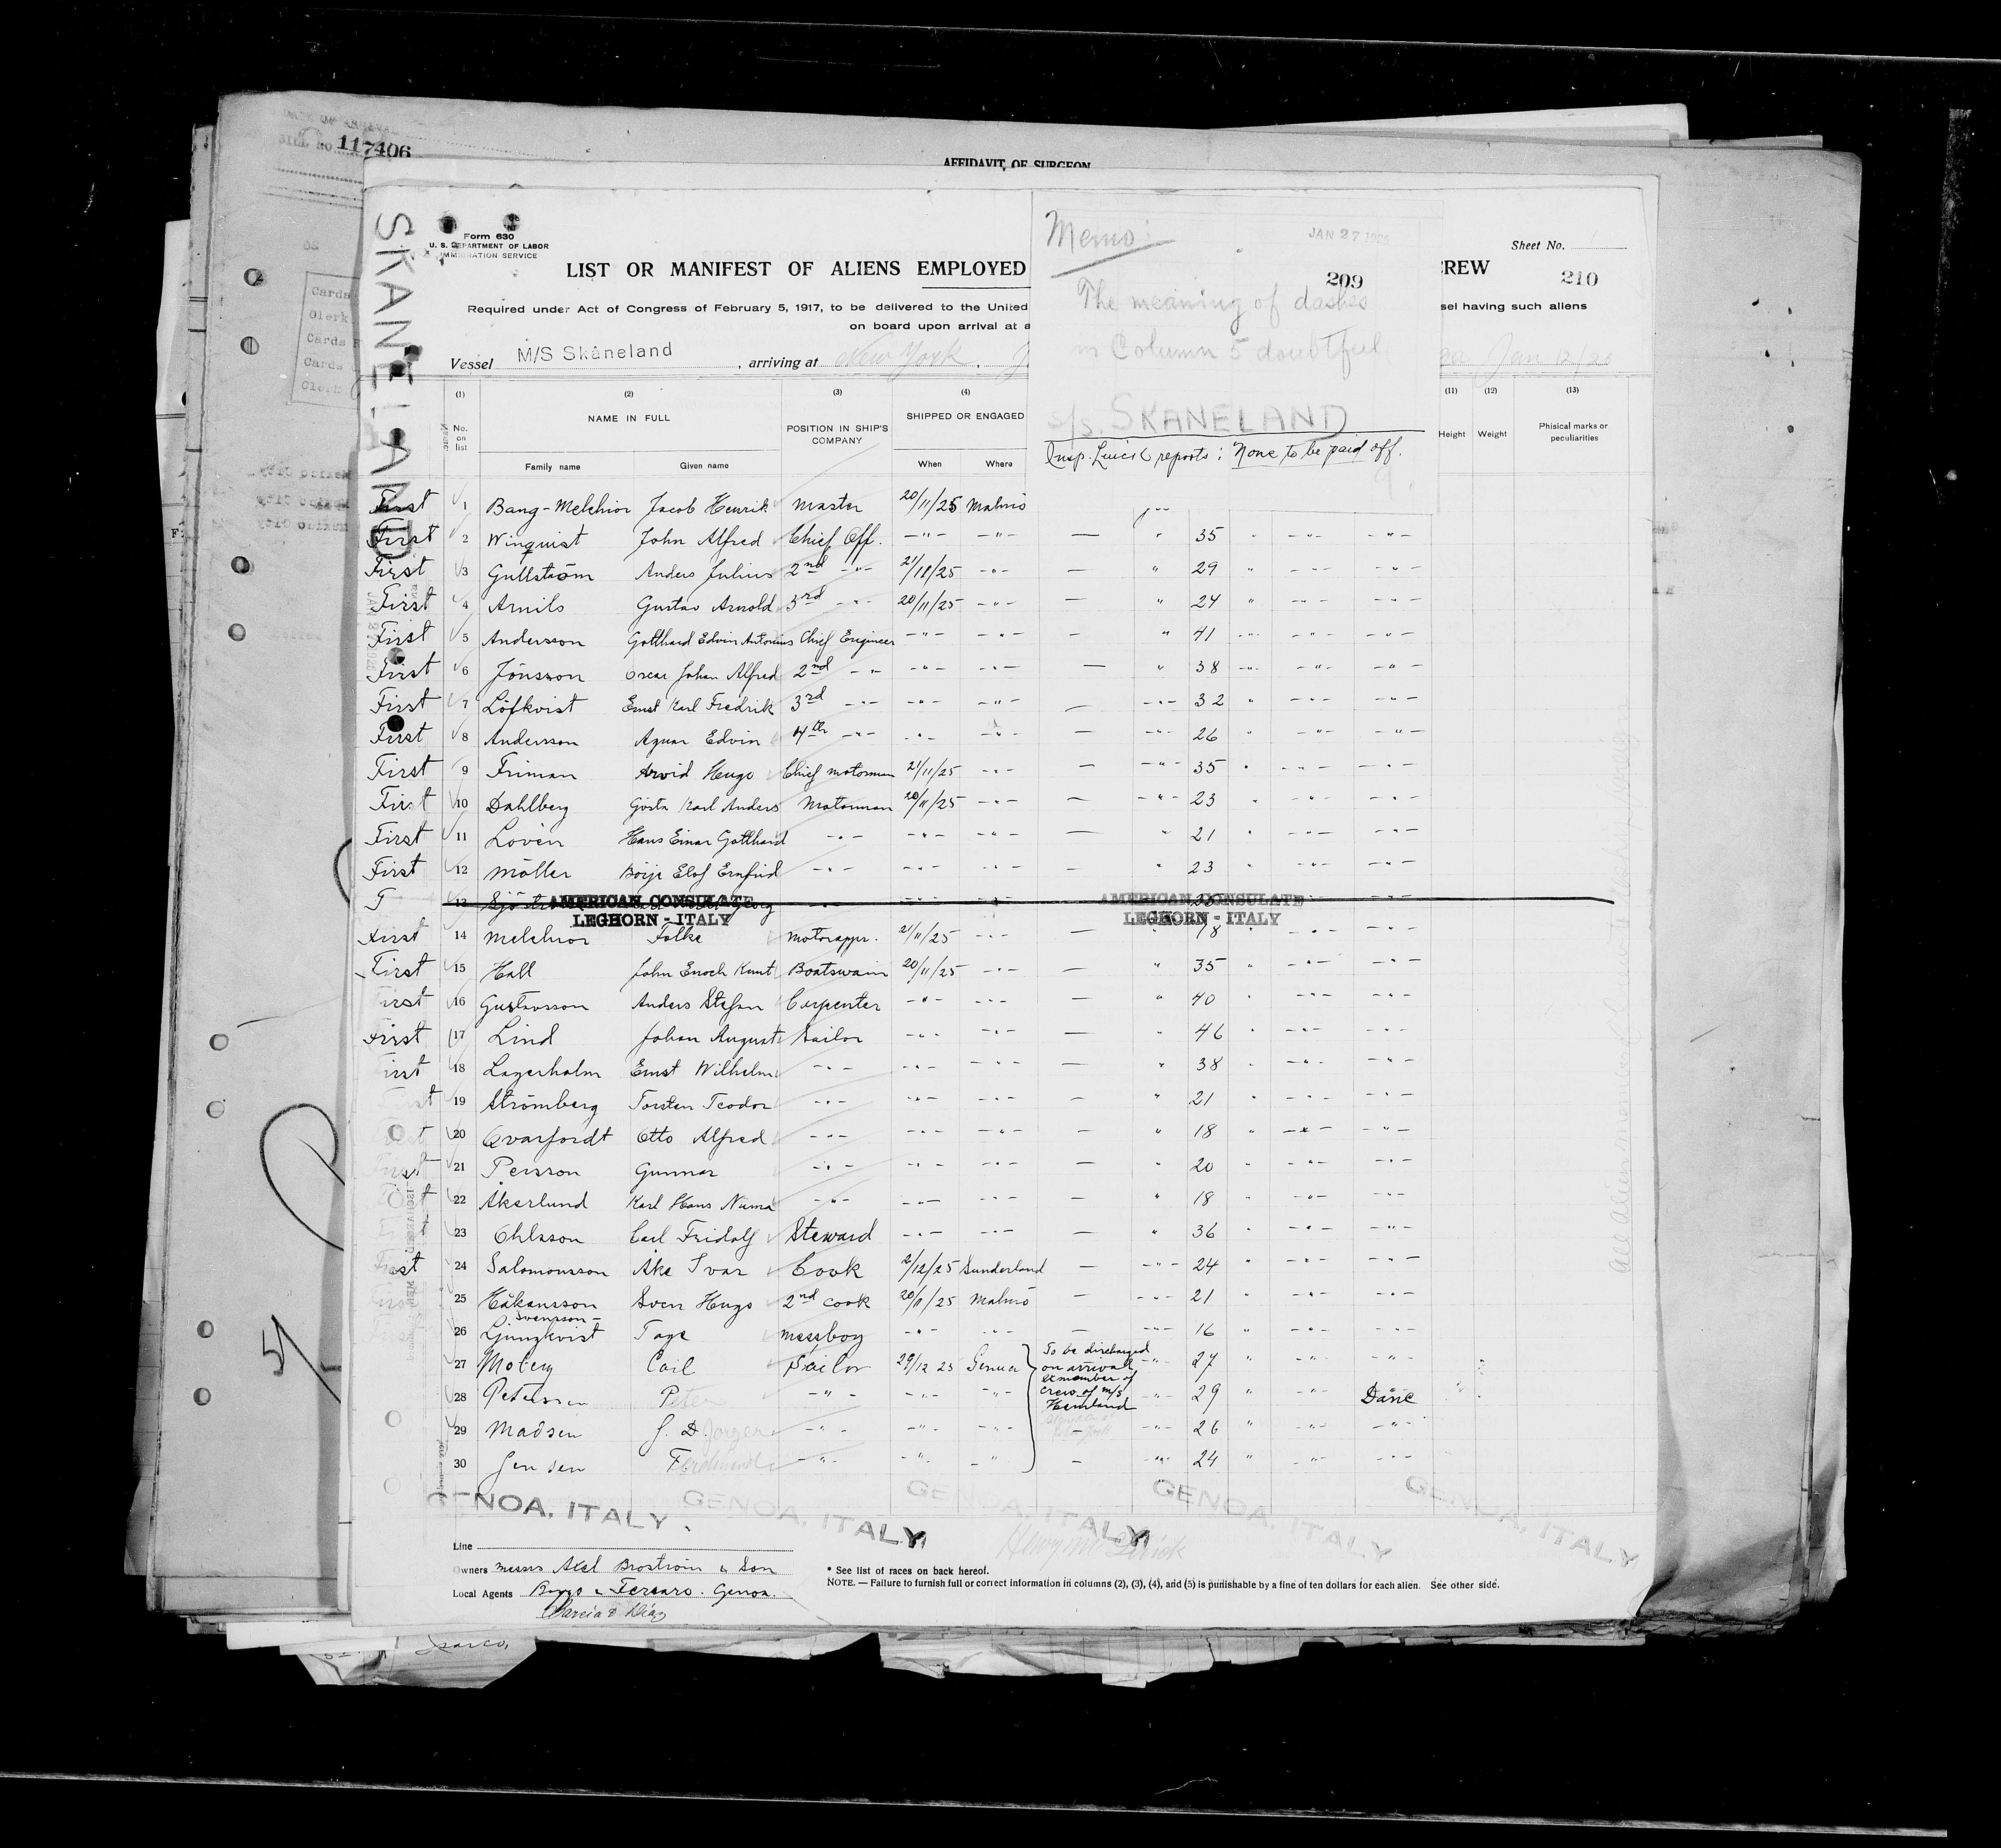 117406
AFFIDAVIT OF SURGEON
SKANELAND
Form 630
U. S. DEPARTMENT OF LABOR
IMMIGRATION SERVICE
Memo:
JAN 27 1926
Sheet No. 1
LIST OR MANIFEST OF ALIENS EMPLOYED
209
CREW
210
The meaning of dashes
in Column 5 doubtful
Required under Act of Congress of February 5, 1917, to be delivered to the United
sel having such aliens
on board upon arrival at a
Vessel M/S Skåneland , arriving at New York , Jan 12/26
S/S. SKANELAND
Insp. reports: None to be paid off.
(1) (2) (3) (4) (11) (12) (13)
No. on list NAME IN FULL POSITION IN SHIP'S COMPANY SHIPPED OR ENGAGED Height Weight Phisical marks or peculiarities
Family name Given name When Where
First 1 Bang-Melchior Jacob Henrik Master 20/11/25 Malmö
First 2 Winquist John Alfred Chief Off. -"- -"- — " 35 " -"- -"-
First 3 Gullström Anders Julius 2nd -"- 21/11/25 -"- — " 29 " -"- -"-
First 4 Arnils Gustav Arnold 3rd -"- 20/11/25 -"- — " 24 " -"- -"-
First 5 Andersson Gotthard Edvin Antonius Chief Engineer -"- -"- — " 41 -"- -"- -"-
First 6 Jönsson Oscar Johan Alfred 2nd -"- -"- -"- — " 38 -"- -"- -"-
First 7 Löfkvist Ernst Karl Fredrik 3rd -"- -"- -"- — -"- 32 " -"- -"-
First 8 Andersson Agnar Edvin 4th -"- -"- -"- — -"- 26 " -"- -"-
First 9 Friman Arvid Hugo Chief motorman 21/11/25 -"- — -"- 35 " -"- -"-
First 10 Dahlberg Gösta Karl Anders Motorman 20/11/25 -"- — -"- 23 " -"- -"-
First 11 Lovén Hans Einar Gotthard -"- -"- -"- — " 21 " -"- -"-
First 12 Möller Börje Elof Ernfrid -"- -"- -"- — " 23 " -"- -"-
13
AMERICAN CONSULATE
LEGHORN - ITALY
AMERICAN CONSULATE
LEGHORN - ITALY
First 14 Melchior Folke Motorappr. 21/11/25 -"- — " 18 " -"- -"-
First 15 Hall John Enoch Knut Boatswain 20/11/25 -"- — " 35 " -"- -"-
First 16 Gustavsson Anders Stefan Carpenter -"- -"- — " 40 " -"- -"-
First 17 Lind Johan August Sailor -"- -"- — " 46 " -"- -"-
First 18 Lagerholm Ernst Wilhelm -"- -"- -"- — " 38 " -"- -"-
First 19 Strömberg Torsten Teodor -"- -"- -"- — " 21 " -"- -"-
First 20 Qvarfordt Otto Alfred -"- -"- -"- — " 18 " -"- -"-
First 21 Persson Gunnar -"- -"- -"- — " 20 " -"- -"-
First 22 Åkerlund Karl Hans Numa -"- -"- -"- — " 18 " -"- -"-
First 23 Ohlsson Carl Fridolf Steward -"- -"- — " 36 " -"- -"-
First 24 Salomonsson Åke Ivar Cook 2/12/25 Sunderland — -"- 24 " -"- -"-
First 25 Håkansson Sven Hugo 2nd cook 20/11/25 Malmö — -"- 21 " -"- -"-
Svensson-
26 Ljungkvist Tage messboy -"- -"- — -"- 16 " -"- -"-
27 Moberg Carl Sailor 29/12 25 Genua -"- 27 " -"- -"-
To be discharged
on arrival
exmember of
crew of m/s
Hemland
28 Petersen Peter -"- -"- -"- -"- 29 " -"- Dane
29 Madsen J. D. Jorgen -"- -"- -"- — -"- 26 " -"- -"-
30 Jensen Ferdinand -"- -"- -"- — -"- 24 " -"- -"-
GENOA, ITALY GENOA, ITALY GENOA, ITALY GENOA, ITALY GENOA, ITALY
Line
Owners Messrs Axel Broström & Son
* See list of races on back hereof.
NOTE. — Failure to furnish full or correct information in columns (2), (3), (4), and (5) is punishable by a fine of ten dollars for each alien. See other side.
Local Agents Ferraro. Genoa.
Garcia & Diaz